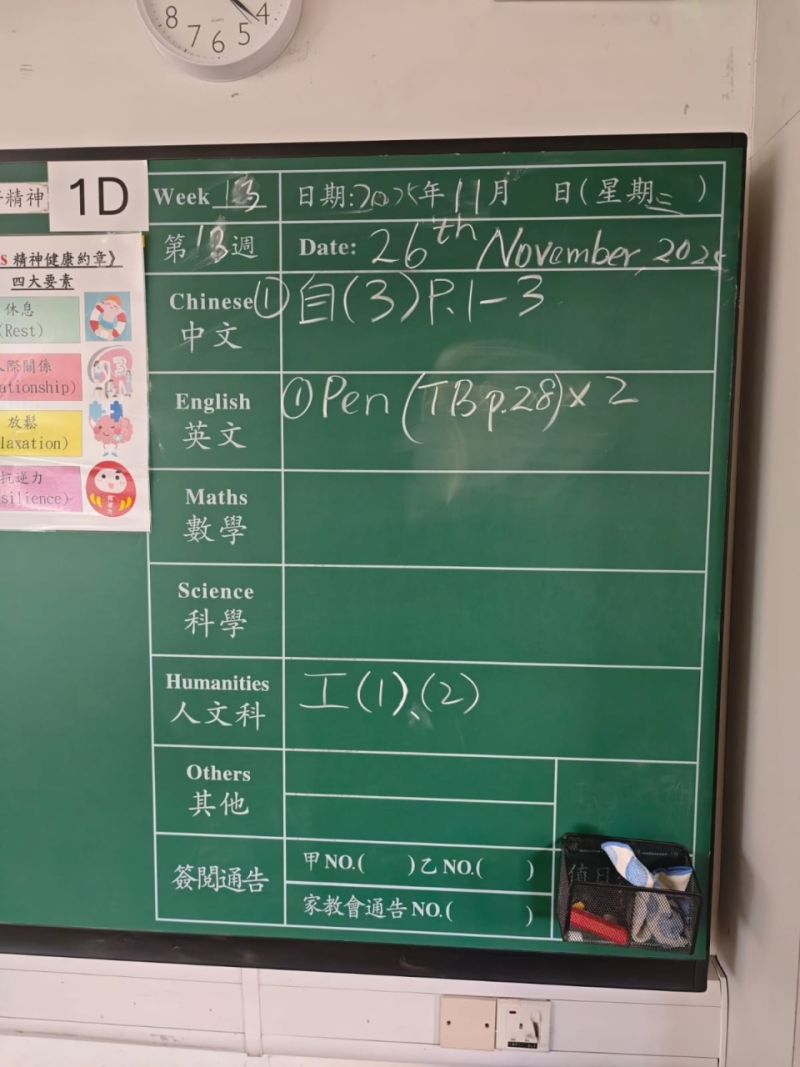 8 7 6 5 4
精神
1D
S 精神健康約章》
四大要素
休息
(Rest)
人際關係
ationship)
放鬆
laxation)
抗逆力
silience)
Week 13
日期:2025年11月 日(星期三 )
第13週
Date: 26th November, 2025
Chinese
中文
① 自(3) P.1-3
English
英文
① Pen (TB p.28) x 2
Maths
數學
Science
科學
Humanities
人文科
工(1)、(2)
Others
其他
簽閱通告
甲NO.( )乙NO.( )
家教會通告NO.( )
值日